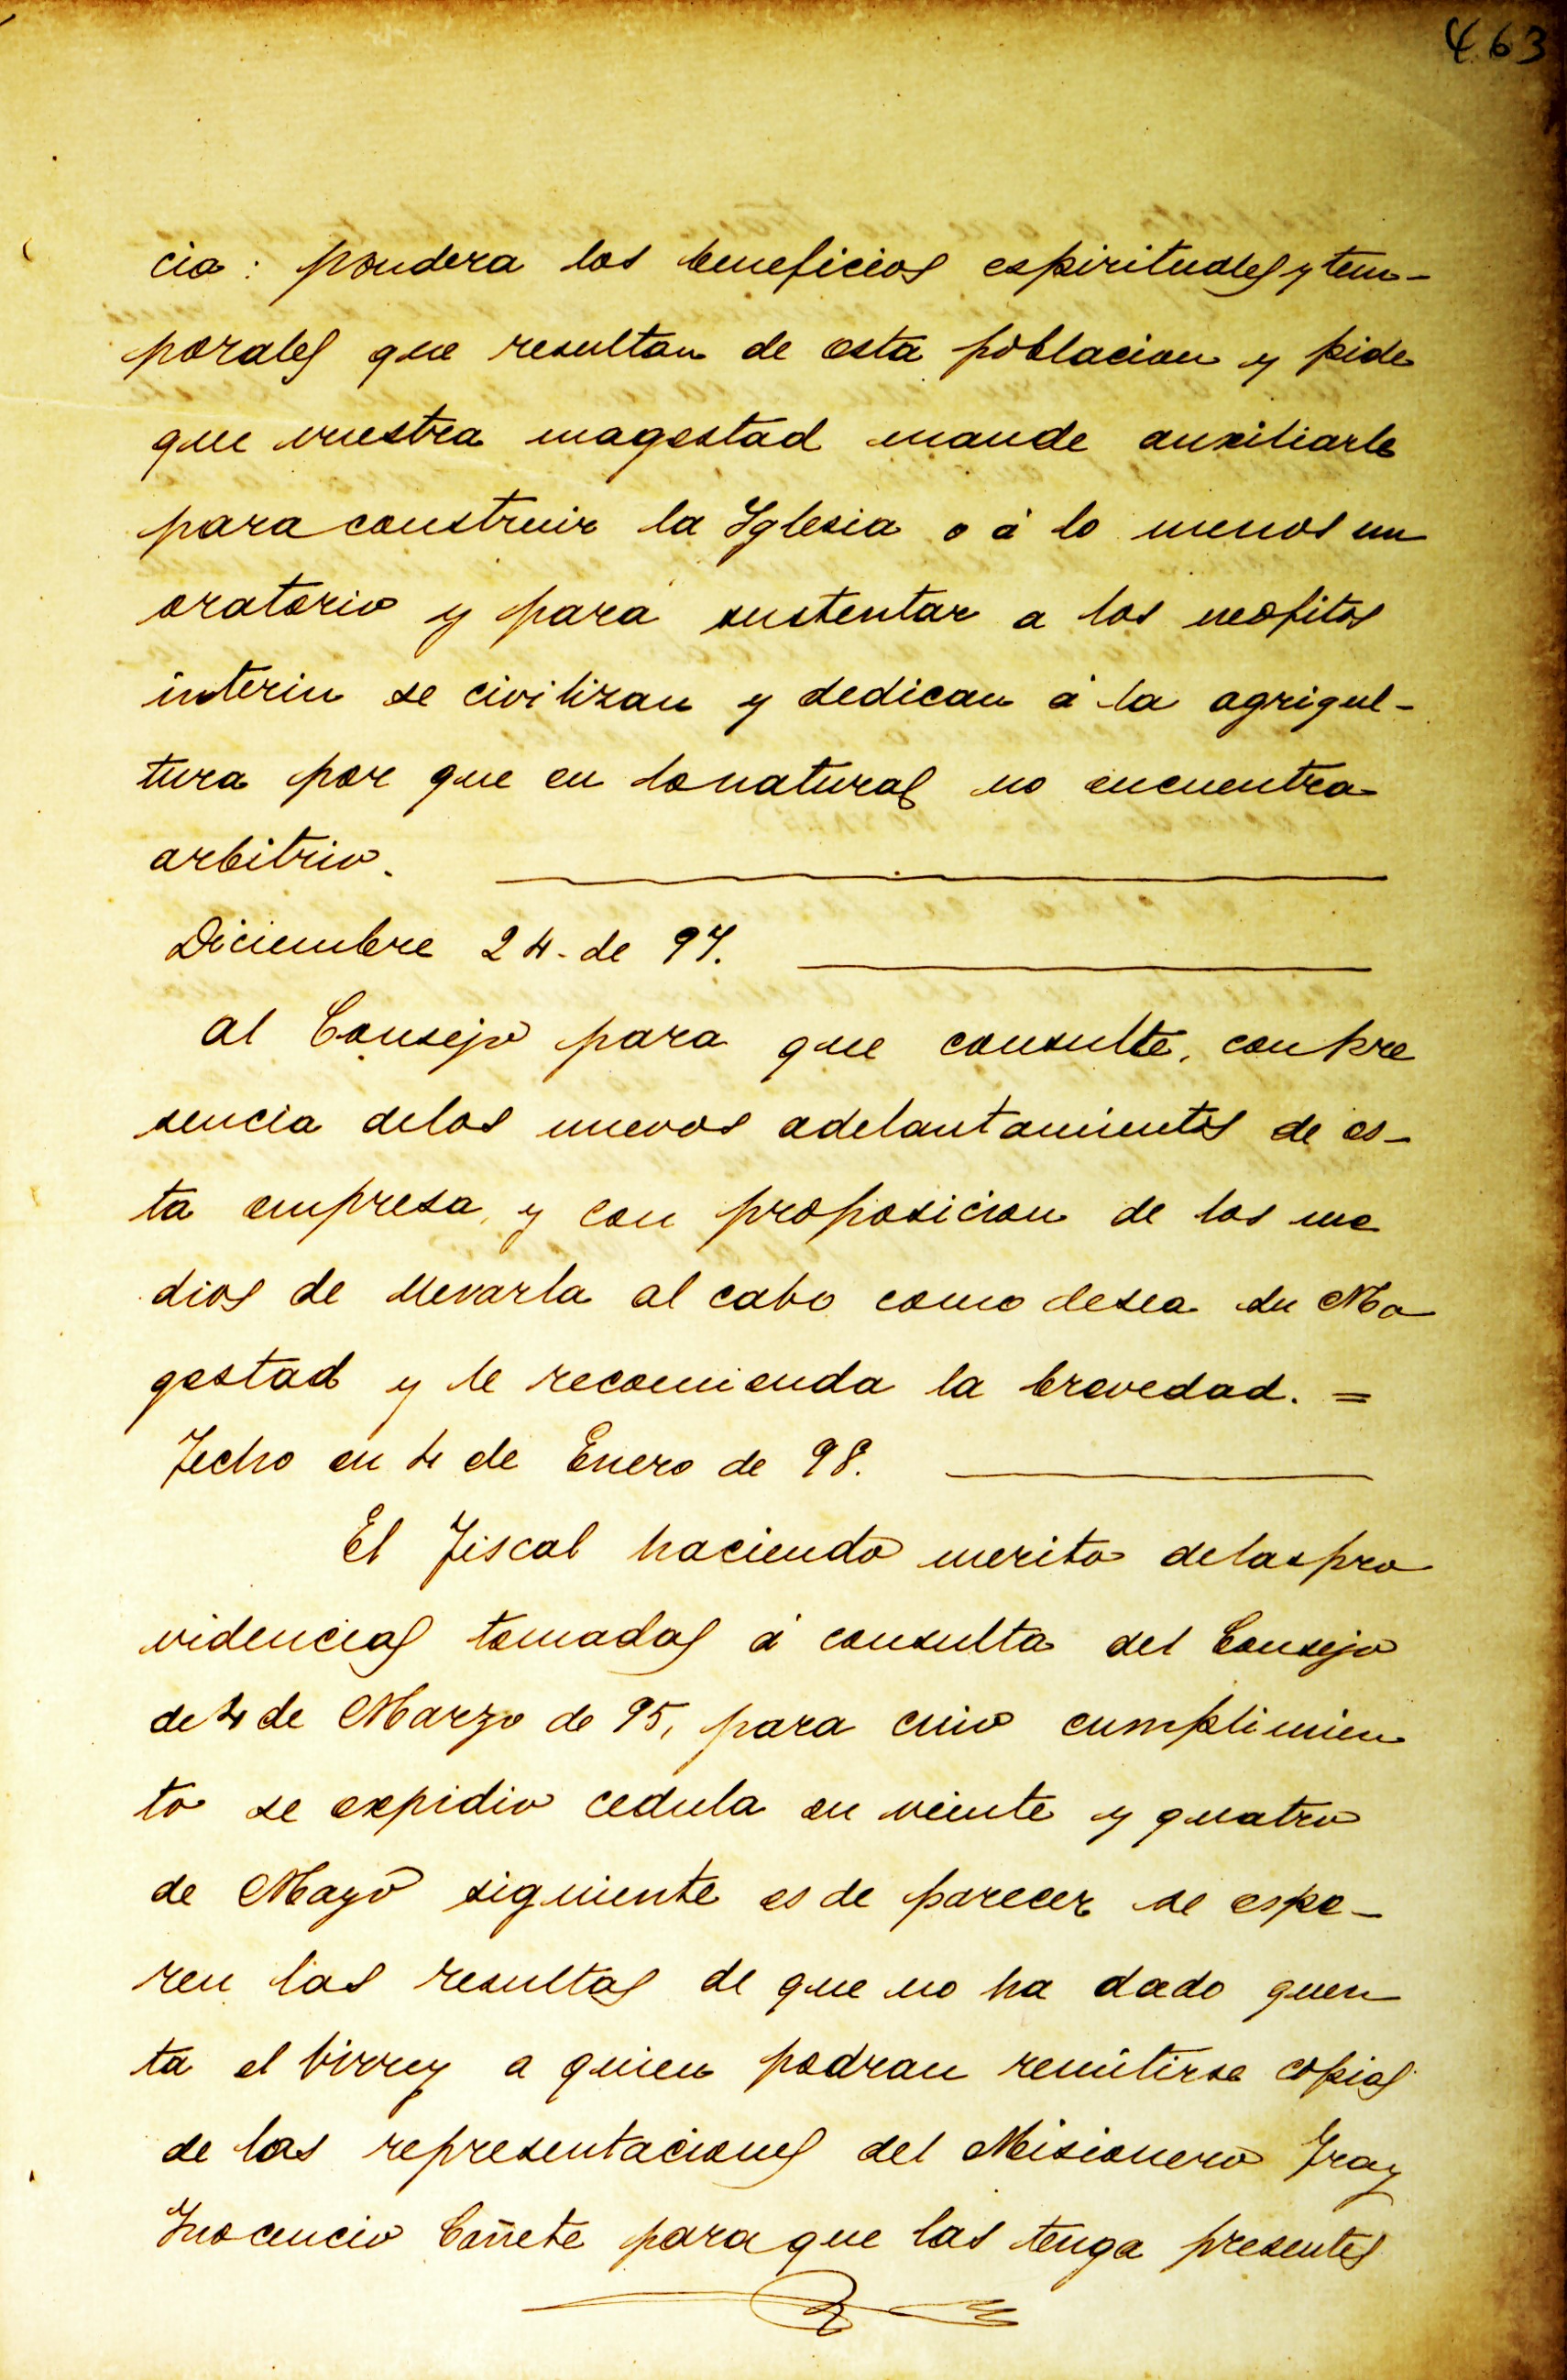 463
cia: pondera los beneficios espirituales y tem-
porales que resultan de esta poblacion y pide
que vuestra magestad mande auxiliarle
para construir la Iglesia o á lo menos un
oratorio y para sustentar a los neofitos
interin se civilizan y dedican á la agrigul-
tura por que en lo natural no encuentra
arbitrio.
Diciembre 24. de 97.
Al Consejo para que consulte, con pre
sencia delos nuevos adelantamientos de es-
ta empresa, y con proposicion de los me
dios de llevarla al cabo como desea su Ma
gestad y le recomienda la brevedad. =
Fecho en 4 de Enero de 98.
El Fiscal haciendo merito delas pro
videncias tomadas á consulta del Consejo
de 4 de Marzo de 95, para cuio cumplimien
to se expidio cedula en veinte y quatro
de Mayo siguiente es de parecer se espe-
ren las resultas de que no ha dado quen
ta el Virrey a quien podran remitirse copias
de las representaciones del Misionero Fray
Inocencio Cañete para que las tenga presentes